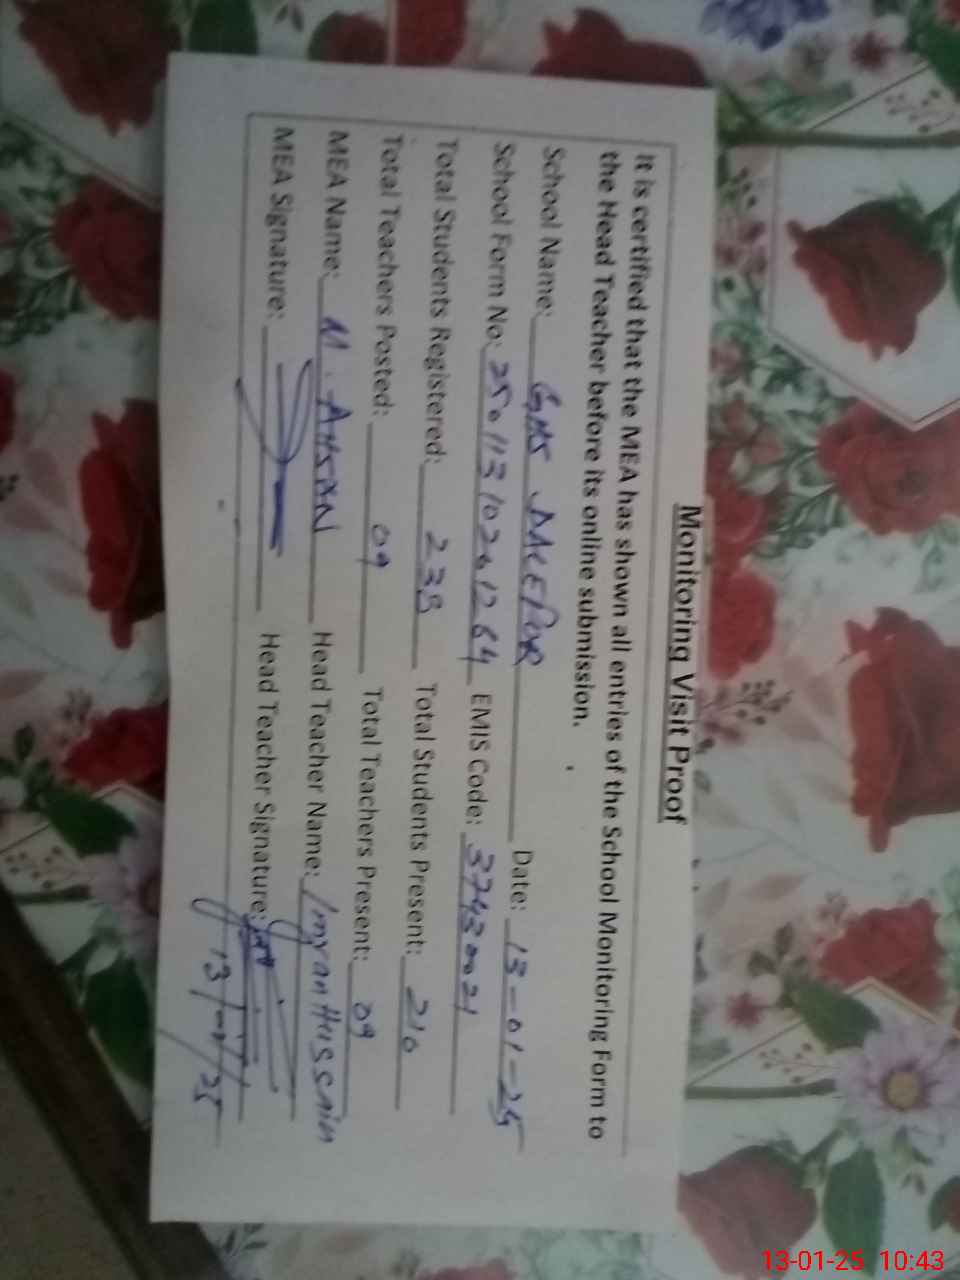 Monitoring Visit Proof
It is certified that the MEA has shown all entries of the School Monitoring Form to
the Head Teacher before its online submission.
School Name: GHS Date: 13-01-25
School Form No: EMIS Code: 37430021
Total Students Registered: 235 Total Students Present: 210
Total Teachers Posted: 09 Total Teachers Present: 09
MEA Name: M. AHSAN Head Teacher Name: Imran Hussain
MEA Signature: Head Teacher Signature:
13-01-25 10:43